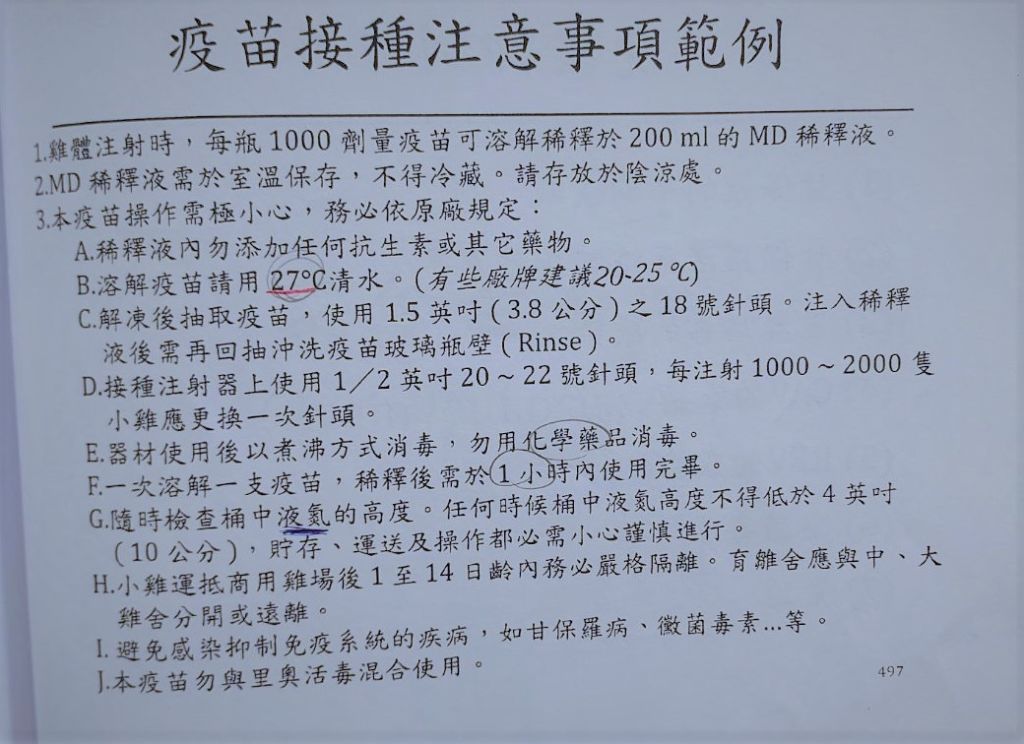 疫苗接種注意事項範例
1.雞體注射時，每瓶 1000 劑量疫苗可溶解稀釋於 200 ml 的 MD 稀釋液。
2.MD 稀釋液需於室溫保存，不得冷藏。請存放於陰涼處。
3.本疫苗操作需極小心，務必依原廠規定：
A.稀釋液內勿添加任何抗生素或其它藥物。
B.溶解疫苗請用 27°C清水。(有些廠牌建議20-25 ℃)
C.解凍後抽取疫苗，使用 1.5 英吋（3.8 公分）之 18 號針頭。注入稀釋
液後需再回抽沖洗疫苗玻璃瓶壁（Rinse）。
D.接種注射器上使用 1／2 英吋 20～22 號針頭，每注射 1000～2000 隻
小雞應更換一次針頭。
E.器材使用後以煮沸方式消毒，勿用化學藥品消毒。
F.一次溶解一支疫苗，稀釋後需於 1 小時內使用完畢。
G.隨時檢查桶中液氮的高度。任何時候桶中液氮高度不得低於 4 英吋
（10 公分），貯存、運送及操作都必需小心謹慎進行。
H.小雞運抵商用雞場後 1 至 14 日齡內務必嚴格隔離。育雛舍應與中、大
雞舍分開或遠離。
I. 避免感染抑制免疫系統的疾病，如甘保羅病、黴菌毒素...等。
J.本疫苗勿與里奧活毒混合使用。
497